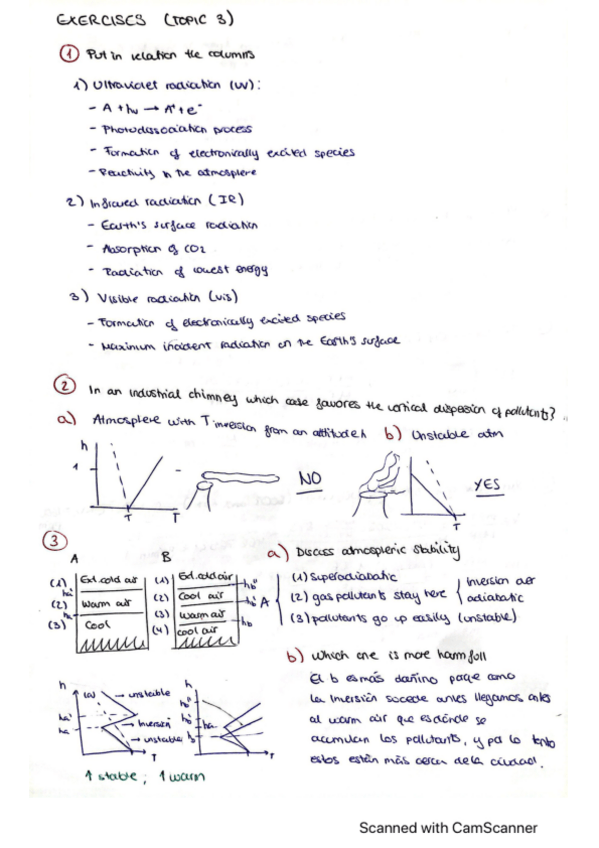 EXERCISES (TOPIC 3)
① Put in relation the columns
1) Ultraviolet radiation (UV):
- A + hν → A⁺ + e⁻
- Photodissociation process
- Formation of electronically excited species
- Reactivity in the atmosphere
2) Infrared radiation (IR)
- Earth's surface radiation
- Absorption of CO2
- Radiation of lowest energy
3) Visible radiation (vis)
- Formation of electronically excited species
- Maximum incident radiation on the Earth's surface
② In an industrial chimney which case favores the vertical dispersion of pollutants?
a) Atmosphere with T inversion from an altitude h b) Unstable atm
h
1
T T
NO
T
YES
③
A B
(1) Ext. cold air
ha'
(2) Warm air
ha
(3) Cool
(1) Ext. cold air
hb''
(2) Cool air
hb'
(3) Warm air
hb
(4) cool air
a) Discuss atmospheric stability
A
(1) superadiabatic
(2) gas pollutants stay here
(3) pollutants go up easilly (unstable)
inversion aer
adiabatic
b) Which one is more harmfull
El b es más dañino porque como
la inversión sucede antes llegamos antes
al warm air que es dónde se
acumulan los pollutants, y por lo tanto
estos están más cerca de la ciudad.
h
unstable
ha'
inversion
ha
unstable
T
h
hb''
hb'
ha
hb
T
1 stable; 1 warm
Scanned with CamScanner